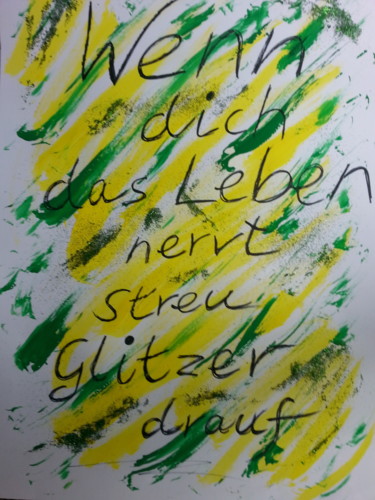 Wenn
dich
das Leben
nervt
streu
Glitzer
drauf